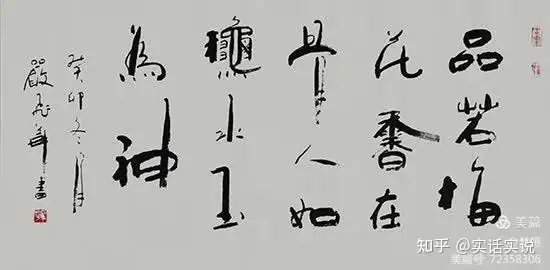 品若梅
花香在
骨人如
龝水玉
為神
癸卯冬月
嚴書
美篇
知乎 @实话实说
美篇号 72358306